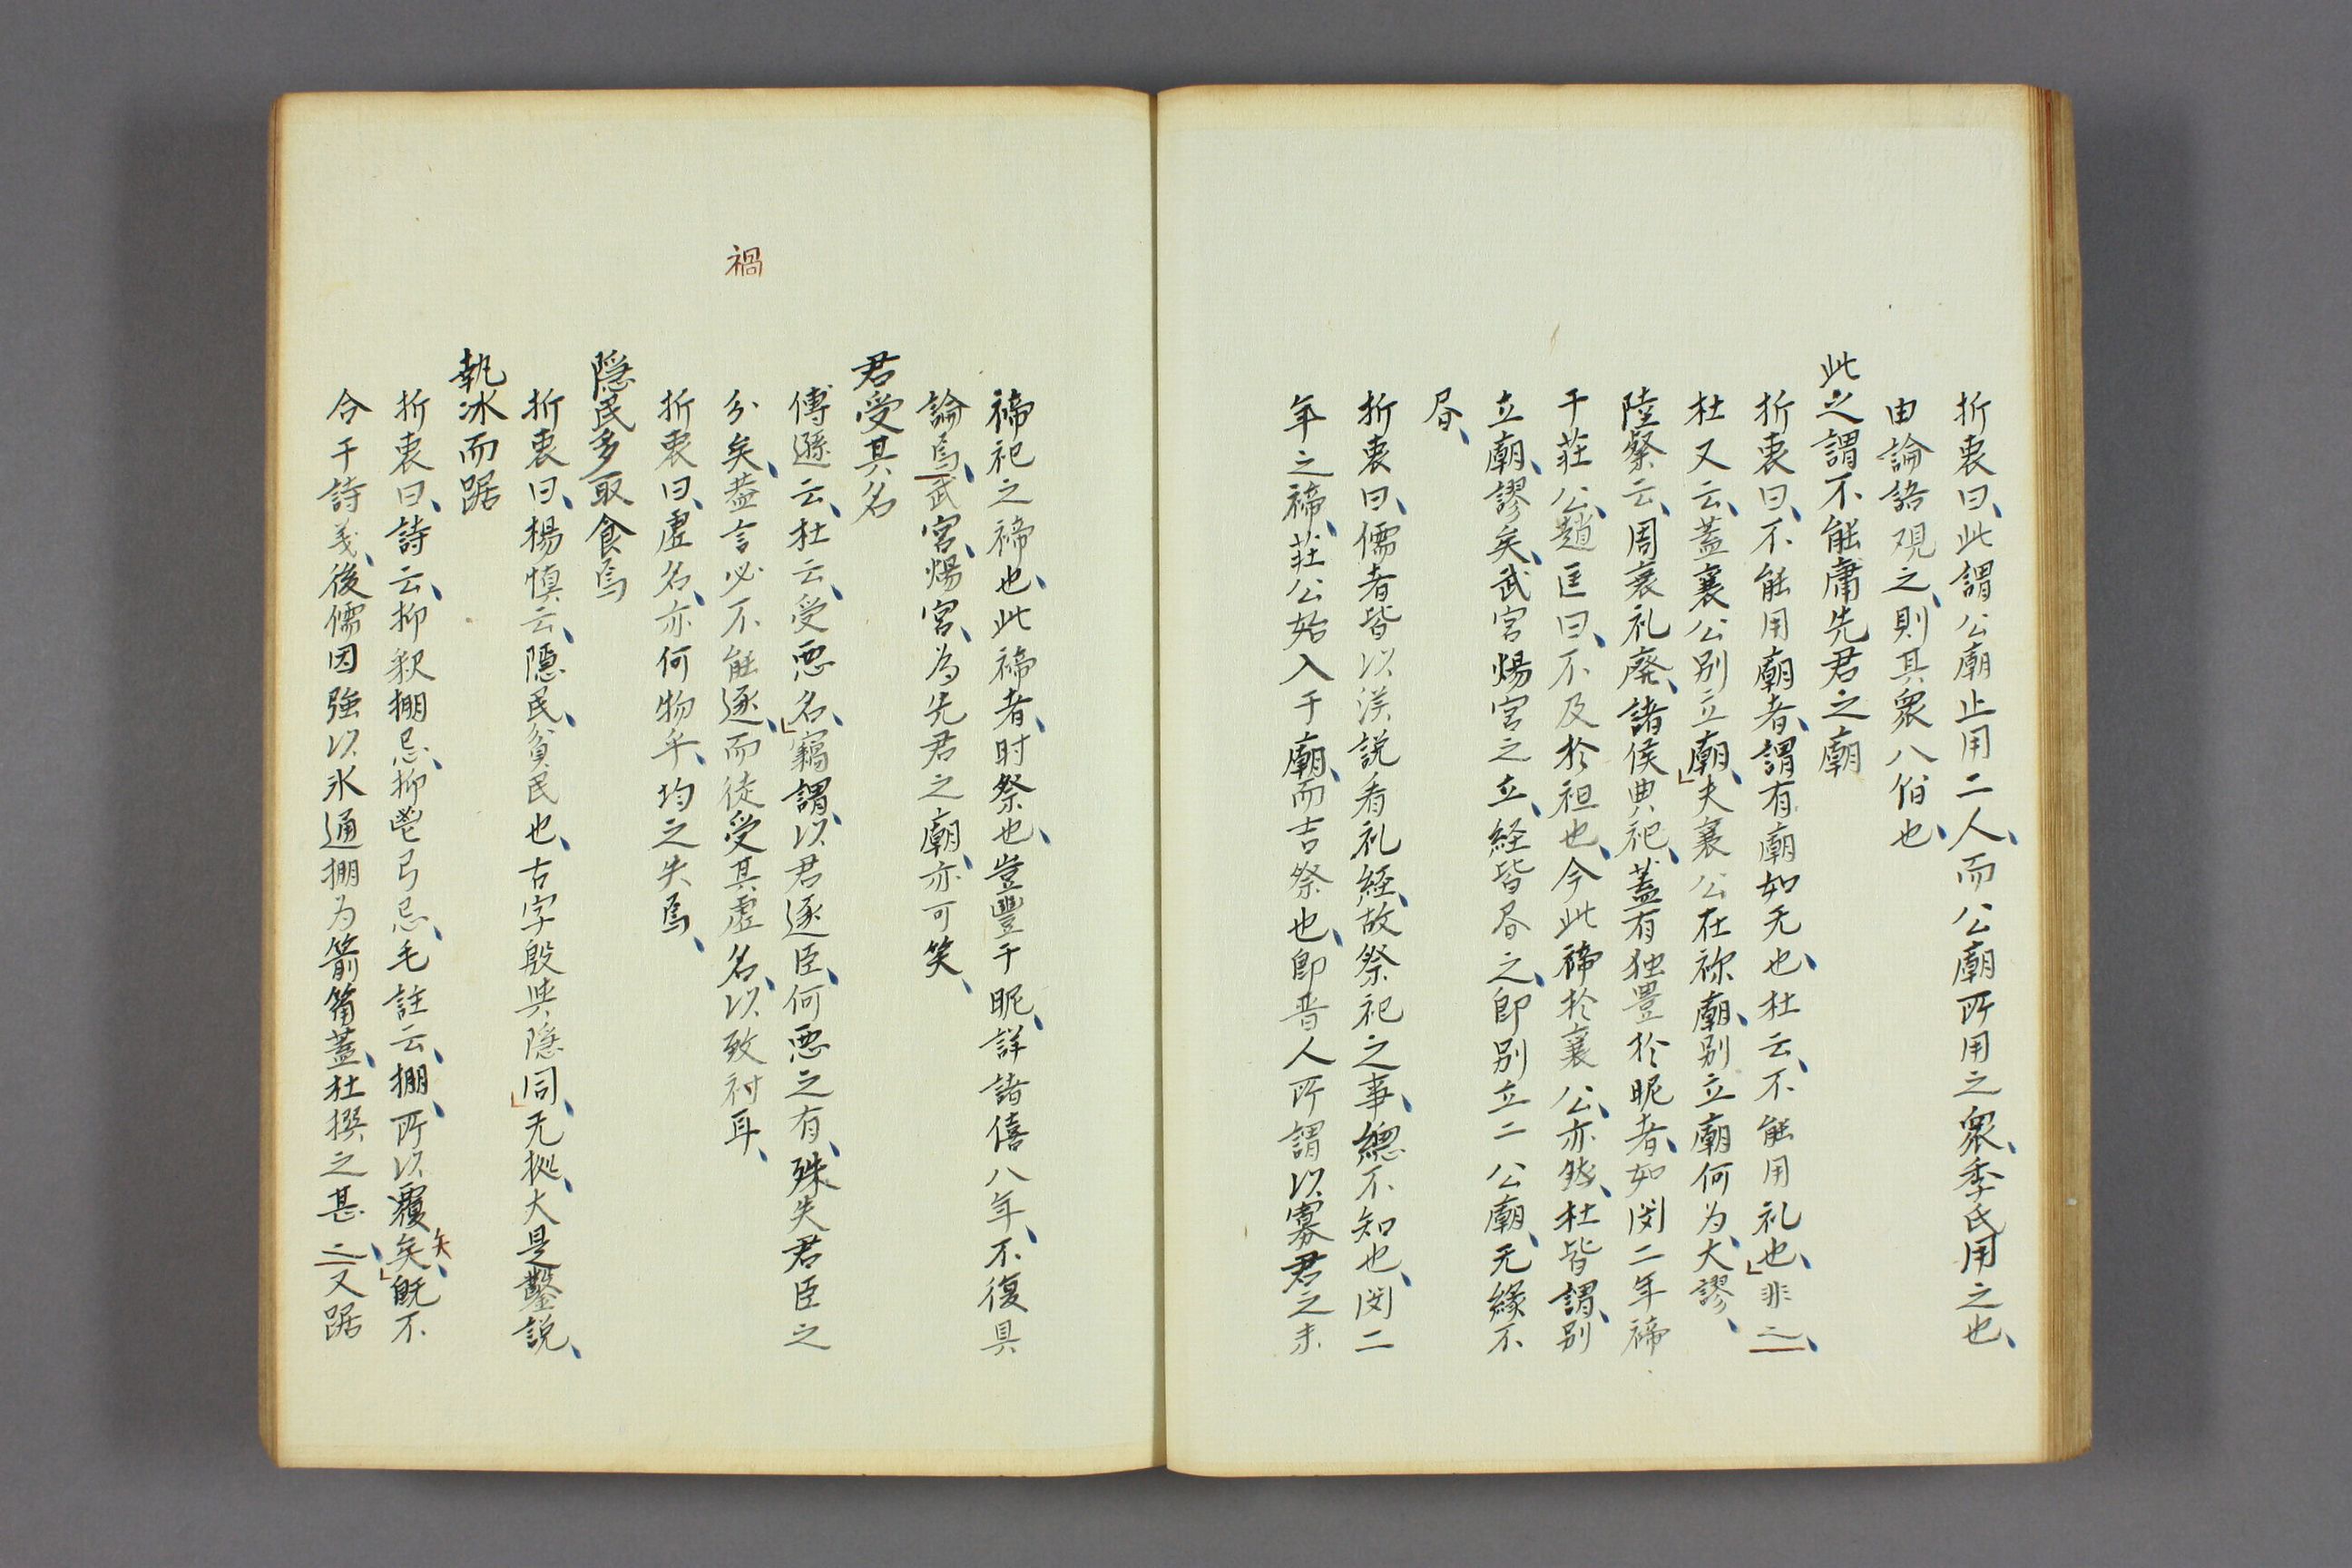 折衷曰、此謂公廟止用二人、而公廟所用之衆、季氏用之也、
由論語観之、則其衆八佾也、
此之謂不能庸先君之廟
折衷曰、不能用廟者、謂有廟如无也、杜云、不能用礼也、」非之、
杜又云、蓋襄公別立廟、」夫襄公在祢廟、別立廟何为、大謬、
陸粲云、周衰礼廃、諸侯典祀、蓋有独豊於昵者、如閔二年禘
于荘公、趙匡曰、不及於祖也、今此禘於襄公、亦然、杜皆謂、別
立廟、謬矣、武宮煬宮之立、経皆昬之、即別立二公廟、无縁不
昬、
折衷曰、儒者皆以漢説看礼経、故祭祀之事、總不知也、閔二
年之禘、荘公始入于廟、而吉祭也、即晋人所謂以寡君之未
禘祀之禘也、此禘者、时祭也、豈豐于昵、詳諸僖八年、不復具
論焉、武宮、煬宮、为先君之廟、亦可笑、
君受其名
傅遜云、杜云、受悪名、」竊謂、以君逐臣、何悪之有、殊失君臣之
分矣、蓋言必不能逐、而徒受其虚名、以致討耳、
禍
折衷曰、虚名、亦何物乎、均之失焉、
隠民多取食焉
折衷曰、楊慎云、隠民、貧民也、古字殷與隠同、」无拠、大是鑿説、
執冰而踞
折衷曰、詩云、抑釈掤忌、抑鬯弓忌、毛註云、掤、所以覆矢、」既不
矢
合于詩義、後儒因強以氷通掤为箭筩蓋、杜撰之甚之、又踞